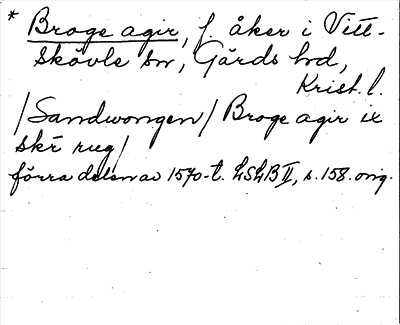 * Broge agir, f. åker i Vitt-
skövle sn, Gärds hd,
Krist. l.
/Sandwongen/ Broge agir ix
skr̄ rug/
förra delen av 1570-t. LSLB II, s. 158. orig.